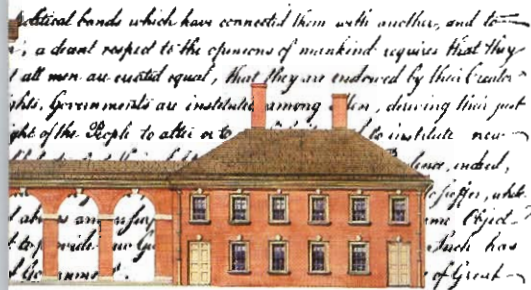 political bands which have connected them with another, and to
, a decent respect to the opinions of mankind requires that they
all men are created equal, that they are endowed by their Creator
ghts, Governments are instituted among Men, deriving their just
ght of the People to alter or to to institute new
dence, indeed,
to suffer, whil
d abuses and usurp ame Object
t to provide new Gu Such has
of Government. of Great